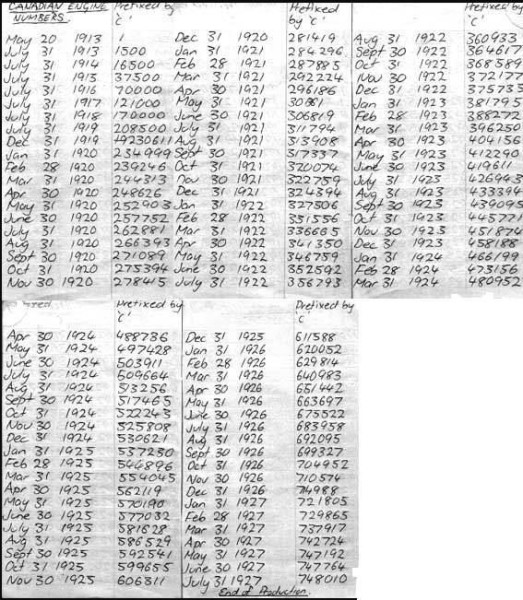 CANADIAN ENGINE NUMBERS. Prefixed by 'C'
May 20 1913 1
July 31 1913 1500
July 31 1914 16500
July 31 1915 37500
July 31 1916 70000
July 31 1917 121000
July 31 1918 170000
July 31 1919 208500
Dec 31 1919
Jan 31 1920 234999
Feb 28 1920 239246
Mar 31 1920 244313
Apr 30 1920 248626
May 31 1920 252903
June 30 1920 257752
July 31 1920 262881
Aug 31 1920 266393
Sept 30 1920 271089
Oct 31 1920 275394
Nov 30 1920 278415
Prefixed by 'C'
Dec 31 1920 281419
Jan 31 1921 284296
Feb 28 1921 287885
Mar 31 1921 292224
Apr 30 1921 296186
May 31 1921
June 30 1921 306819
July 31 1921 311794
Aug 31 1921 313908
Sept 30 1921 317337
Oct 31 1921 320074
Nov 30 1921 322759
Dec 31 1921 324394
Jan 31 1922 327506
Feb 28 1922 331556
Mar 31 1922 336665
Apr 30 1922 341350
May 31 1922 346759
June 30 1922 352592
July 31 1922 356793
Prefixed by 'C'
Aug 31 1922 360933
Sept 30 1922 364617
Oct 31 1922 368589
Nov 30 1922 372177
Dec 31 1922 375733
Jan 31 1923 381795
Feb 28 1923 388272
Mar 31 1923 396250
Apr 30 1923 404156
May 31 1923 412290
June 30 1923 419610
July 31 1923 426943
Aug 31 1923 433394
Sept 30 1923 439095
Oct 31 1923 445771
Nov 30 1923 451874
Dec 31 1923 458188
Jan 31 1924 466199
Feb 28 1924 473156
Mar 31 1924 480952
Prefixed by 'C'
Apr 30 1924 488736
May 31 1924 497428
June 30 1924 503911
July 31 1924 509664
Aug 31 1924 513256
Sept 30 1924 517465
Oct 31 1924 522243
Nov 30 1924 525808
Dec 31 1924 530621
Jan 31 1925 537230
Feb 28 1925 546896
Mar 31 1925 554045
Apr 30 1925 562119
May 31 1925 570190
June 30 1925 577032
July 31 1925 581628
Aug 31 1925 586529
Sept 30 1925 592541
Oct 31 1925 599655
Nov 30 1925 606311
Prefixed by 'C'
Dec 31 1925 611588
Jan 31 1926 620052
Feb 28 1926 629814
Mar 31 1926 640983
Apr 30 1926 651442
May 31 1926 663697
June 30 1926 675522
July 31 1926 683958
Aug 31 1926 692095
Sept 30 1926 699327
Oct 31 1926 704952
Nov 30 1926 710574
Dec 31 1926 74988
Jan 31 1927 721805
Feb 28 1927 729865
Mar 31 1927 737917
Apr 30 1927 742724
May 31 1927 747192
June 30 1927 747764
July 31 1927 748010
End of Production.